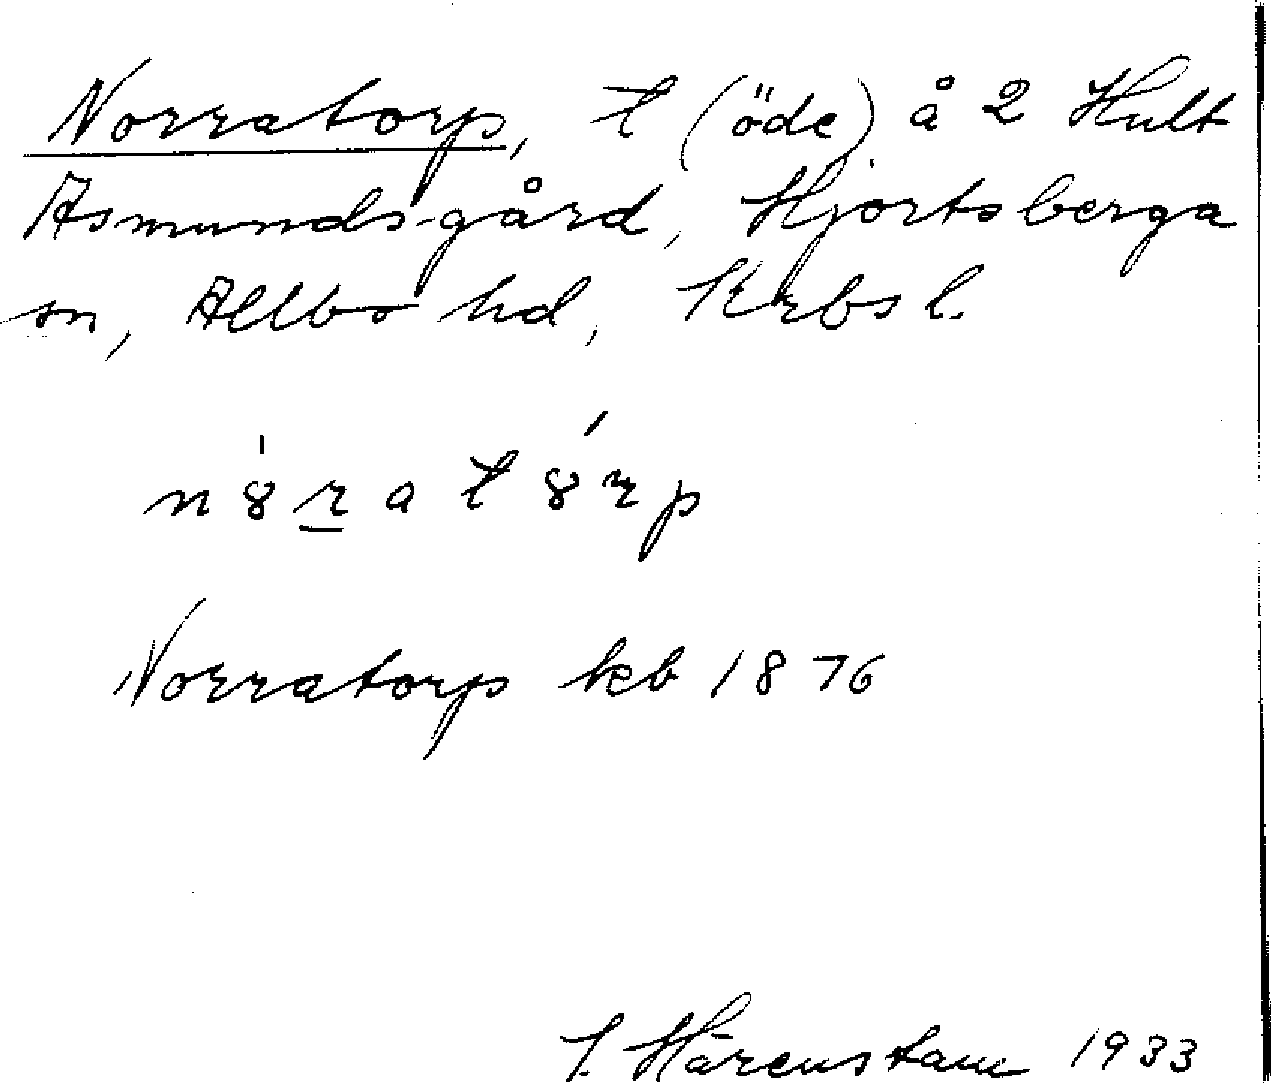 Norratorp, t (öde) å 2 Hult
Asmundsgård, Hjortsberga
sn, Allbo hd, Krbs l.
n8rat8rp
Norratorp kb 1876
J. Härenstam 1933